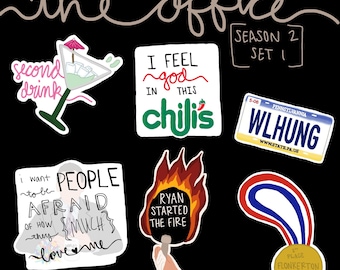 the office
[SEASON 2
SET 1]
second
drink
I FEEL
god
IN THIS
chili's
PENNSYLVANIA
WLHUNG
WWW.STATE.PA.US
i want PEOPLE
to be
AFRAID
OF HOW MUCH
they
love me
RYAN
STARTED
THE FIRE
FLONKERTON